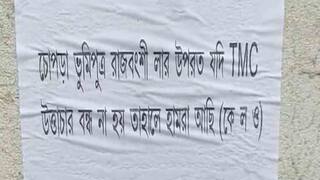 চোপড়া ভুমিপুত্র রাজবংশী লার উপরত যদি TMC
উত্তাচার বন্ধ না হয় তাহলে হামরা আছি (কে ল ও)